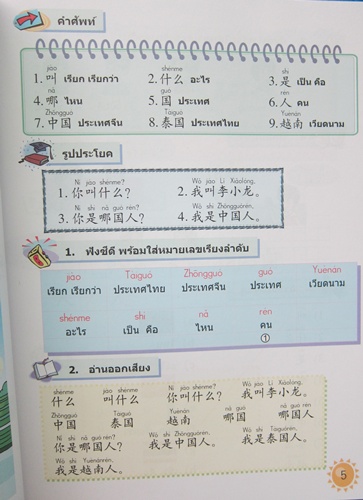 คำศัพท์
jiào shénme shì
1. 叫 เรียก เรียกว่า 2. 什么 อะไร 3. 是 เป็น คือ
nǎ guó rén
4. 哪 ไหน 5. 国 ประเทศ 6. 人 คน
Zhōngguó Tàiguó Yuènán
7. 中国 ประเทศจีน 8. 泰国 ประเทศไทย 9. 越南 เวียดนาม
รูปประโยค
Nǐ jiào shénme? Wǒ jiào Lǐ Xiǎolóng.
1. 你叫什么? 2. 我叫李小龙。
Nǐ shì nǎ guó rén? Wǒ shì Zhōngguórén.
3. 你是哪国人? 4. 我是中国人。
1. ฟังซีดี พร้อมใส่หมายเลขเรียงลำดับ
jiào Tàiguó Zhōngguó guó Yuènán
เรียก เรียกว่า ประเทศไทย ประเทศจีน ประเทศ เวียดนาม
shénme shì nǎ rén
อะไร เป็น คือ ไหน คน
①
2. อ่านออกเสียง
shénme jiào shénme Nǐ jiào shénme? Wǒ jiào Lǐ Xiǎolóng.
什么 叫什么 你叫什么? 我叫李小龙。
Zhōngguó Tàiguó Yuènán nǎ guó nǎ guó rén
中国 泰国 越南 哪国 哪国人
Nǐ shì nǎ guó rén? Wǒ shì Zhōngguórén. Wǒ shì Tàiguórén.
你是哪国人? 我是中国人。 我是泰国人。
Wǒ shì Yuènánrén.
我是越南人。
5